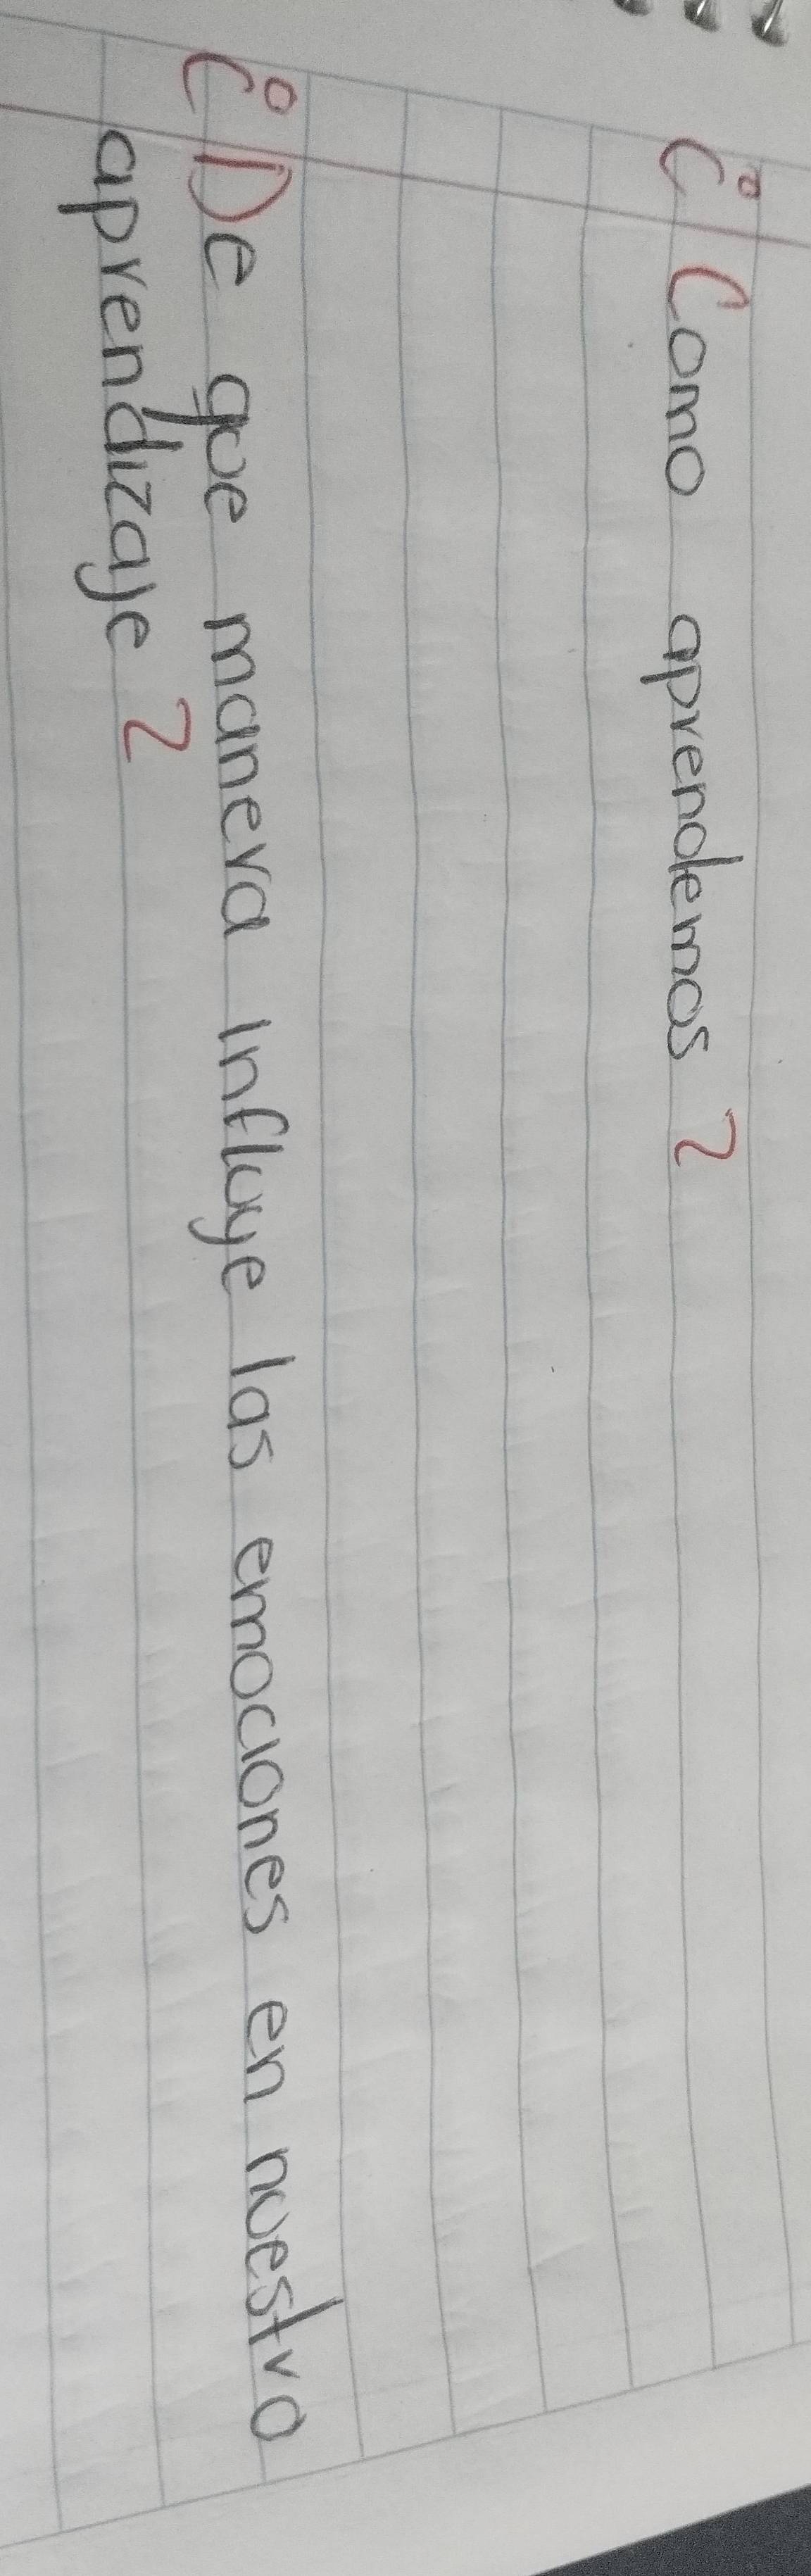 ¿Como aprendemos?
¿De que manera influye las emociones en nuestro
aprendizaje?